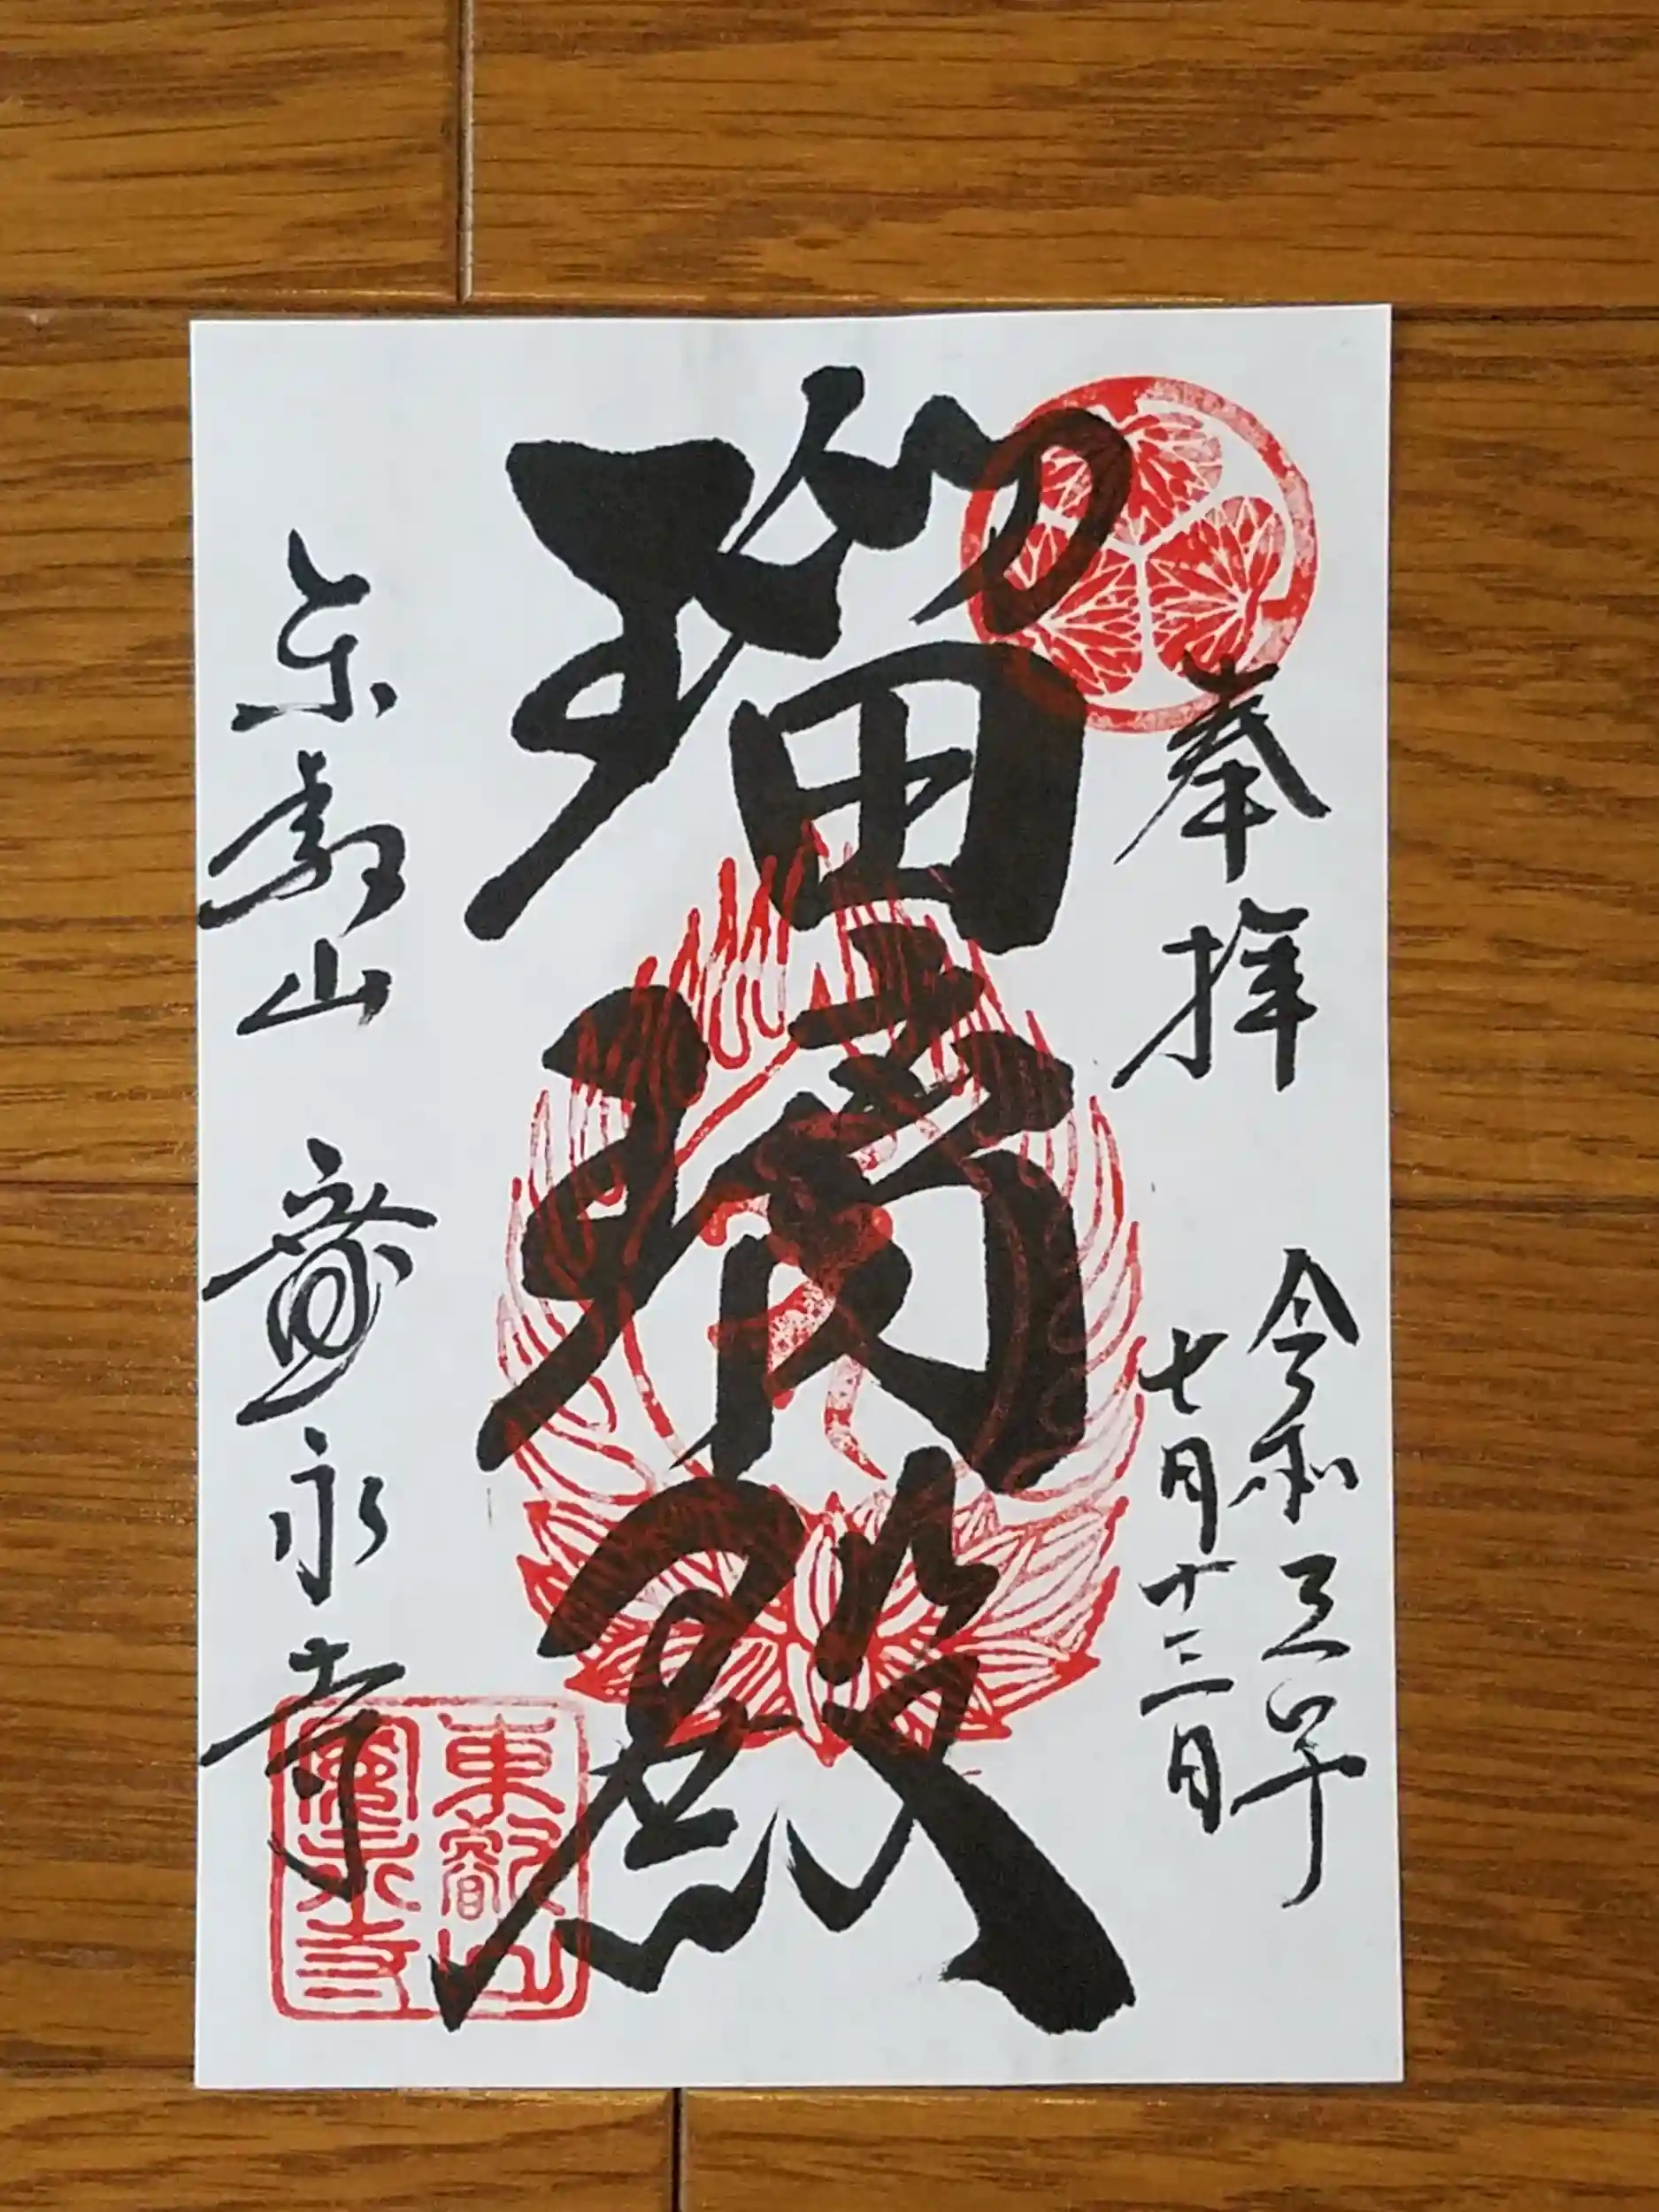 奉拝
令和三年
七月十二日
瑠璃殿
東叡山 寛永寺
東叡山
寛永寺